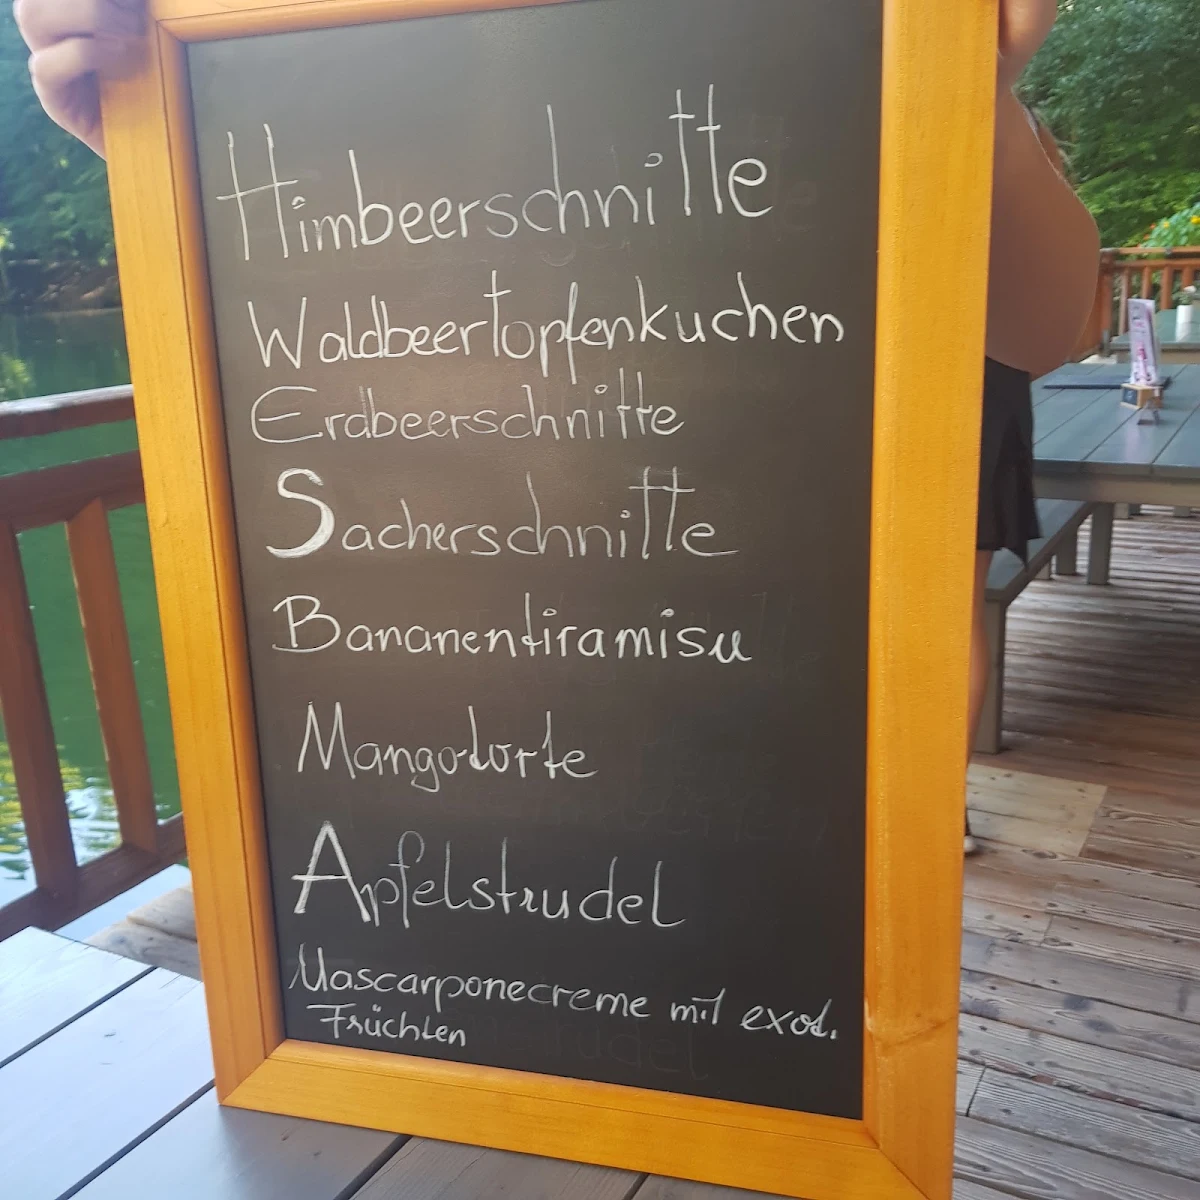 Himbeerschnitte
Waldbeertopfenkuchen
Erdbeerschnitte
Sacherschnitte
Bananentiramisu
Mangotorte
Apfelstrudel
Mascarponecreme mit exot.
Früchten